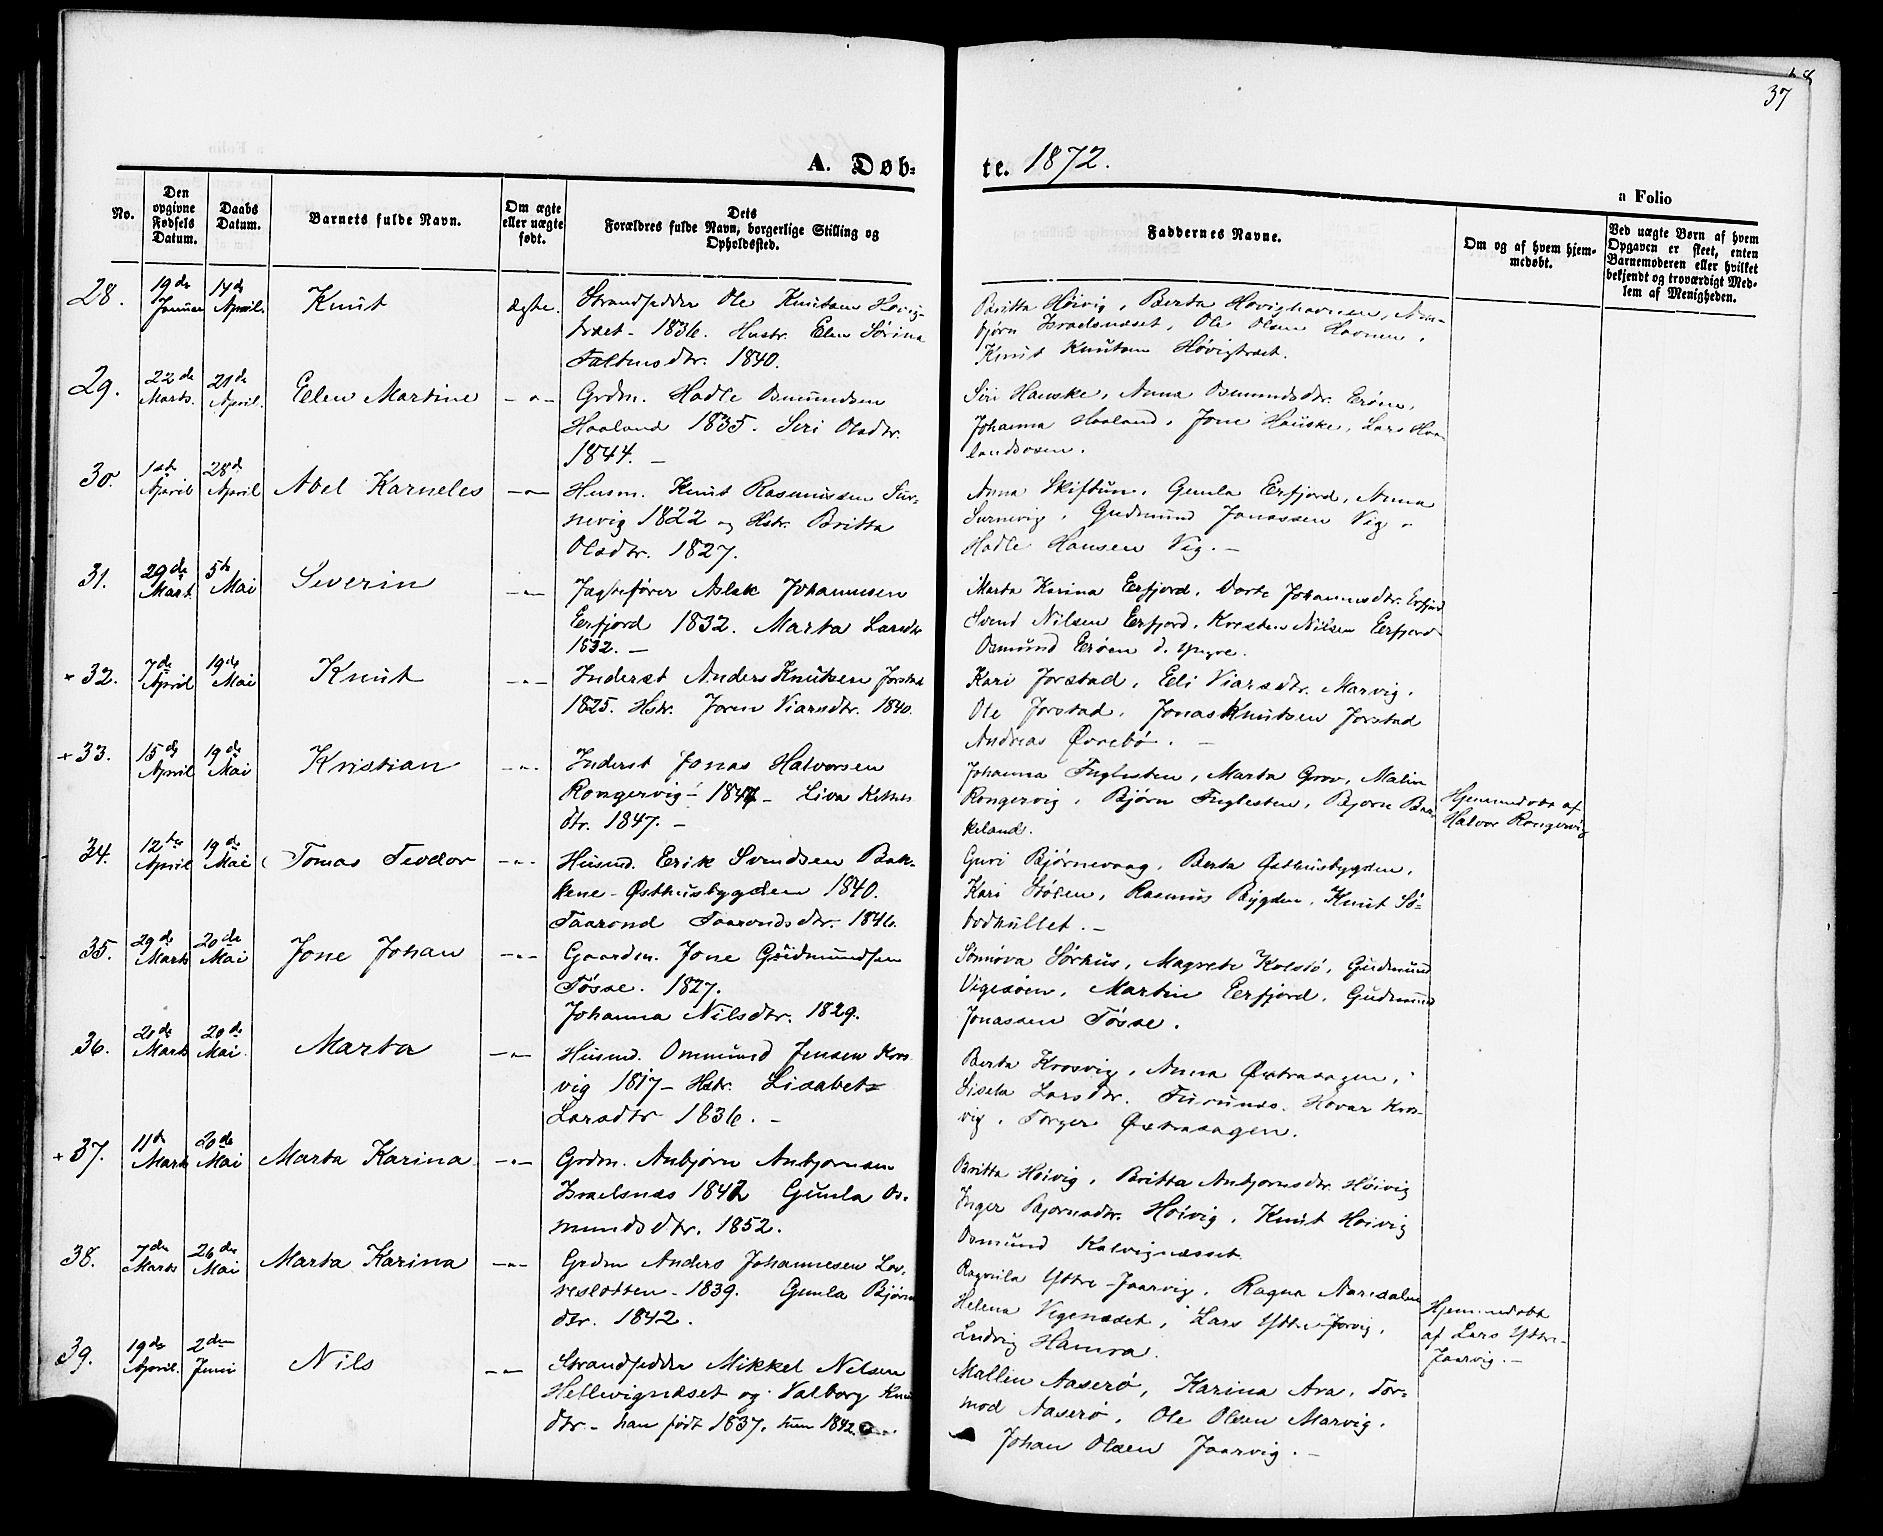 37
A. Døb-
te. 1872.
a Folio
No.
Den opgivne Fødsels Datum.
Daabs Datum.
Barnets fulde Navn.
Om ægte eller uægte født.
Dets Forældres fulde Navn, borgerlige Stilling og Opholdssted.
Faddernes Navne.
Om og af hvem hjemmedøbt.
Ved uægte Børn af hvem Opgaven er skeet, enten Barnemoderen eller hvilket bekjendt og troværdigt Medlem af Menigheden.
28. 19de Januar 14de April. Knut Ægte. Strandsidder Ole Knutsen Høivig-
træet - 1836. Hustr. Elen Sørina
Faltinsdtr. 1840.
Britta Høivig, Berta Høvighavnen, An-
bjørn Israelsnæset, Ole Olsen Havnen,
Knut Knutsen Høvigtræet.
29. 22de Marts. 21de April. Eelen Martine - " - Grdm. Hadle Osmundsen
Haaland 1835. Siri Olsdtr.
1844. -
Siri Hauske, Anna Osmundsdtr. Erøen,
Johanna Haaland, Jone Hauske, Lars Haa-
landsosen.
30. 1ste April 28de April Abel Karneles - " - Husm. Knut Rasmussen Sur-
nevig 1822 og Hstr. Britta
Olsdtr. 1827.
Anna Skiftun, Gunla Erfjord, Anna
Surnevig, Gudmund Jonassen Vig -
Hadle Hansen Vig. -
31. 29de Mart. 5te Mai Severin - " - Jægtefører Aslak Johannesen
Eerfjord 1832. Marta Larsdtr
1832. -
Marta Karina Eerfjord, Dorte Johannesdtr. Erfjord
Svend Nilsen Erfjord, Karsten Nilsen Eerfjord
Osmund Erøen d. yngre.
+ 32. 7de April 19de Mai Knut - " - Inderst Anders Knutsen Jorstad
1825. Hstr. Joren Viarsdtr. 1840.
Kari Jorstad, Eeli Viarsdtr. Marvig,
Ole Jorstad, Jonas Knutsen Jorstad
Andreas Øvrebø. -
+ 33. 15de April 19de Mai Kristian - " - Inderst Jonas Halvorsen
Rongervig - 1847 - Liva Ketils
dtr. 1847. -
Johanna Fuglesten, Marta Grov, Malin
Rongervig, Bjørn Fuglesten, Bjorn Bar-
keland.
Hjemmedøbt af
Halvor Rongervig
34. 12te April 19de Mai Tomas Teodor - " - Husmd. Eerik Svendsen Bak-
kene - Østhusbygden 1840.
Taarond Taarondsdtr. 1846.
Guri Bjørnevaag, Berta Østhusbygden,
Kari Stølen, Rasmus Bygden, Knut Sø-
bodhullet. -
35. 29de Marts 20de Mai Jone Johan - " - Gaardm. Jone Gudmundsen
Tøsse. 1827.
Johanna Nilsdtr. 1829.
Sønnøva Sørhus, Magrete Kolstø, Gudmund
Vigesøen, Martin Eerfjord, Gudmund
Jonassen Tøsse.
36. 20de Marts 20de Mai. Marta - " - Husmd. Ommund Jensen Kros
vig 1817 - Hstr. Lisabet
Larsdtr 1836. -
Berta Krosvig, Anna Øxtrasagen,
Sisela Larsdtr. Furunes. Havar Kros-
vig. Torger Øxtrasagen.
+ 37. 11te Marts 20de Mai Marta Karina - " - Grdm. Anbjørn Anbjornsen
Israelsnæs 1842 Gunla Os-
mundsdtr. 1852.
Britta Høivig, Britta Anbjornsdtr. Høivig
Inger Bjornsdtr. Hoivig, Knut Hoivig
Osmund Kalvignæsset.
38. 7de Marts 26de Mai Marta Karina - " - Grdm Anders Johannesen Lov-
reslotten - 1839. Gunla Bjørns
dtr. 1842.
Ragnila Yttre-Jaarvig, Ragna Narsdalen
Helena Vigenæset, Lars Yttre-Jorvig,
Ludvig Hamra.
Hjemmedøbt
af Lars Yttre-
Jaarvig. -
39. 19de April. 2den Juni Nils - " - Strandsidder Mikkel Nilsen
Hellevignæset og Valborg Knuts
dtr - han født 1837, hun 1842.
Mallin Aaserø, Karina Ava, Tor-
mod Aaserø, Ole Olsen Marvig,
Johan Olsen Jaarvig. -